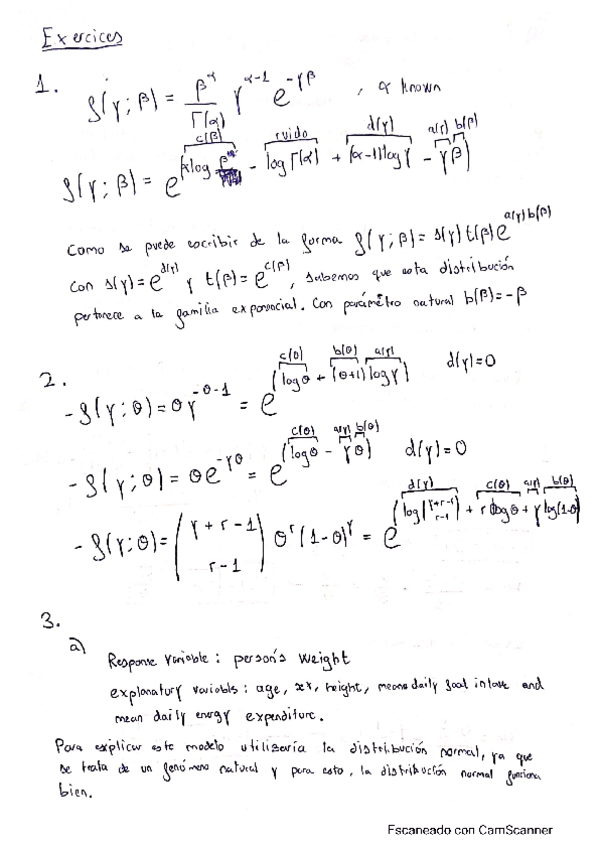 Exercices
1. f(y;β) = β^α / Γ(α) y^(α-1) e^(-yβ) , α known
c(β) ruido d(y) a(y) b(β)
f(y;β) = e^(αlog β - log Γ(α) + (α-1)log y - yβ)
Como se puede escribir de la forma f(y;β) = s(y) t(β) e^(a(y)b(β))
Con s(y) = e^(d(y)) y t(β) = e^(c(β)), sabemos que esta distribución
pertenece a la familia exponencial. Con parámetro natural b(β) = -β
2.
c(θ) b(θ) a(y)
- f(y;θ) = θy^(-θ-1) = e^(logθ + (θ+1) log y) d(y)=0
c(θ) a(y) b(θ)
- f(y;θ) = θe^(-yθ) = e^(logθ - yθ) d(y)=0
d(y) c(θ) a(y) b(θ)
- f(y;θ) = (y+r-1 r-1) θ^r (1-θ)^y = e^(log(y+r-1 r-1) + r logθ + y log(1-θ))
3.
a)
Response variable: person's weight
explanatory variabls: age, sex, height, means daily food intake and
mean daily energy expenditure.
Para explicar este modelo utilizaría la distribución normal, ya que
se trata de un fenómeno natural y para esto, la distribución normal funciona
bien.
Escaneado con CamScanner